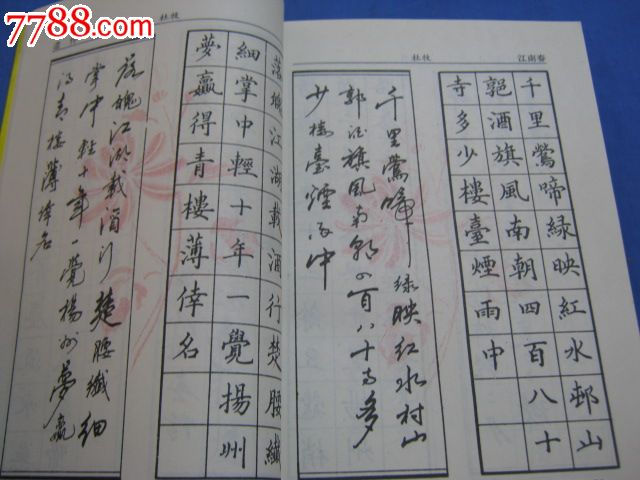 7788.com
江南春
杜牧
千里鶯啼綠映紅水邨山
郭酒旗風南朝四百八十
寺多少樓臺煙雨中
千里鶯啼綠映紅水村山
郭酒旗風南朝四百八十寺多
少樓臺煙雨中
杜牧
落魄江湖載酒行楚腰纖
細掌中輕十年一覺揚州
夢贏得青樓薄倖名
落魄江湖載酒行楚腰纖細
掌中輕十年一覺揚州夢贏
得青樓薄倖名